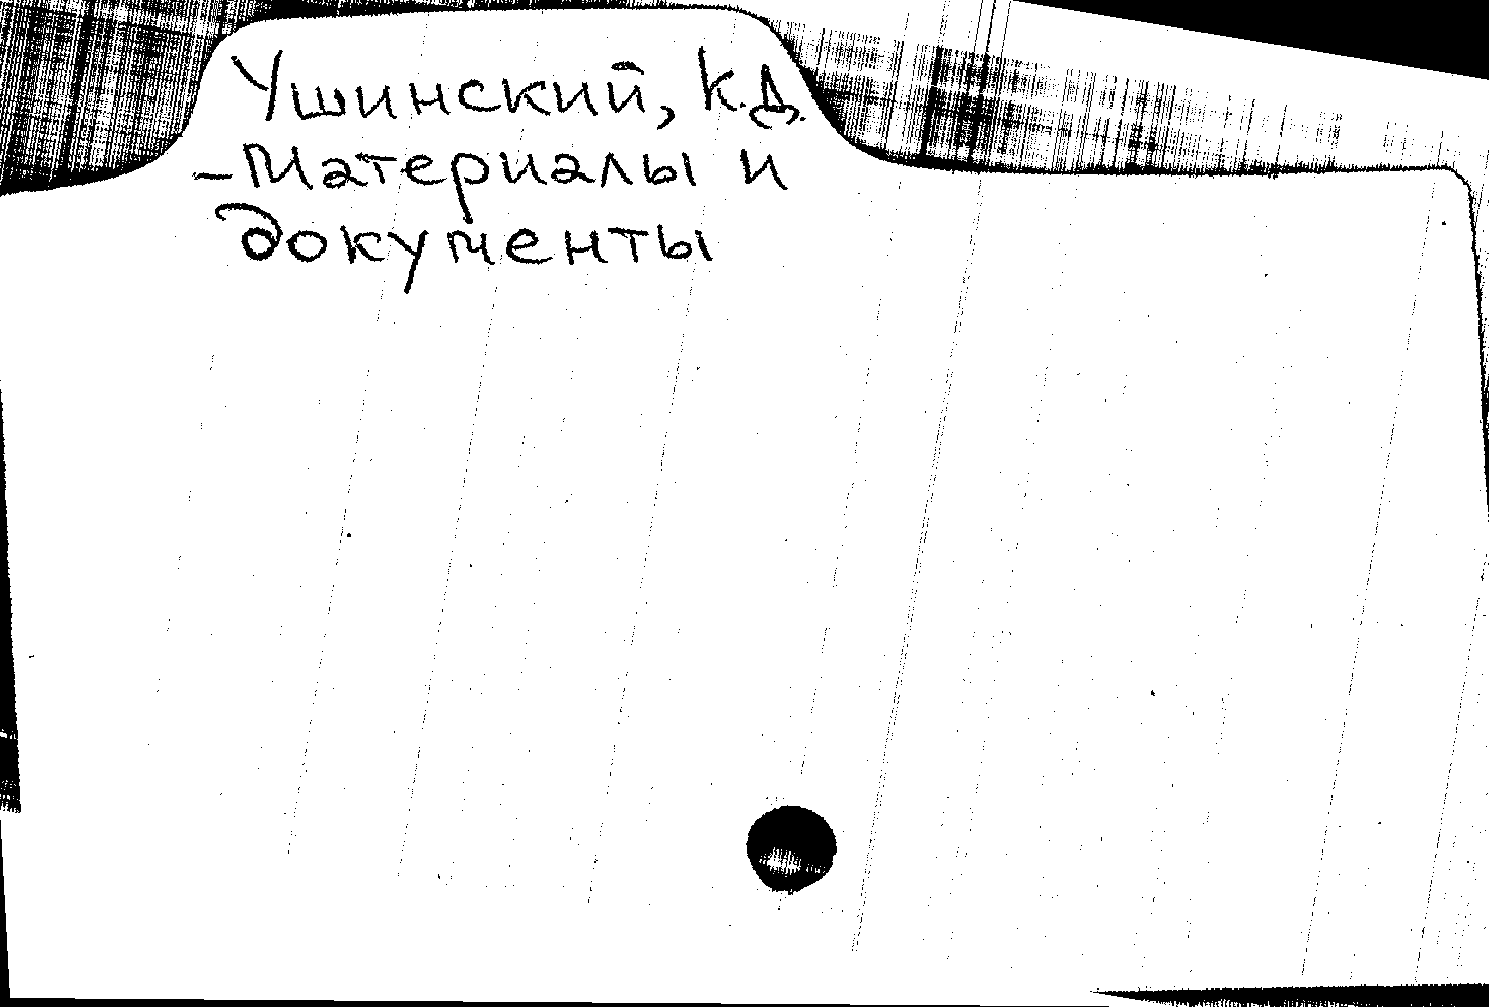 Ушинский, К.Д.
-Материалы и
документы